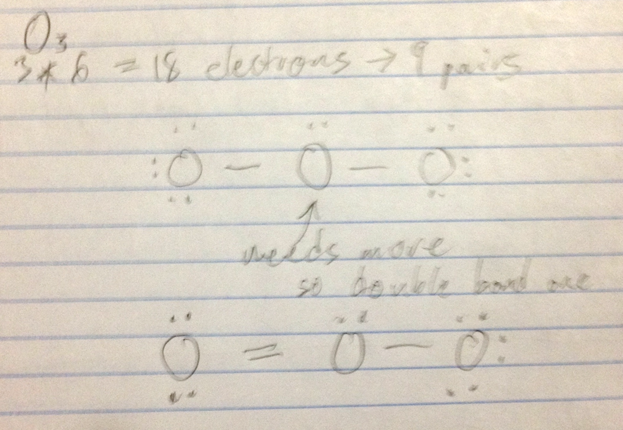 O₃
3 * 6 = 18 electrons → 9 pairs
:Ö̤ — Ö — Ö̤:
↑
needs more
so double bond one
Ö̤ = Ö — Ö̤: